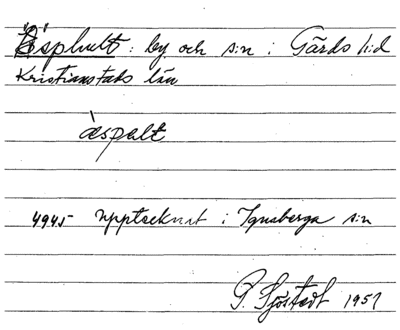 Äsphult : by och s:n i Gärds hd
Kristianstads län
àespalt
4945 upptecknat i Ignaberga s:n
G. Sjöstedt 1951